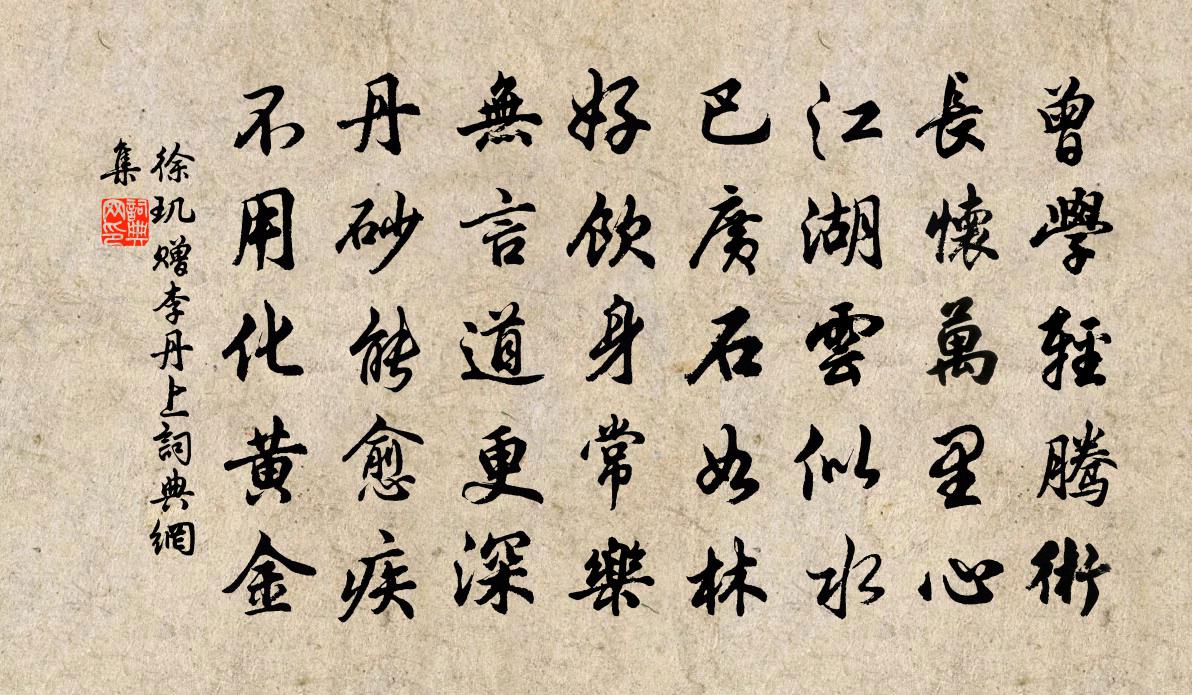 曾學輕騰術
長懷萬里心
江湖雲似水
巴廣石如林
好飲身常樂
無言道更深
丹砂能愈疾
不用化黃金
徐玑赠李丹上詞典網
集
詞典
网印